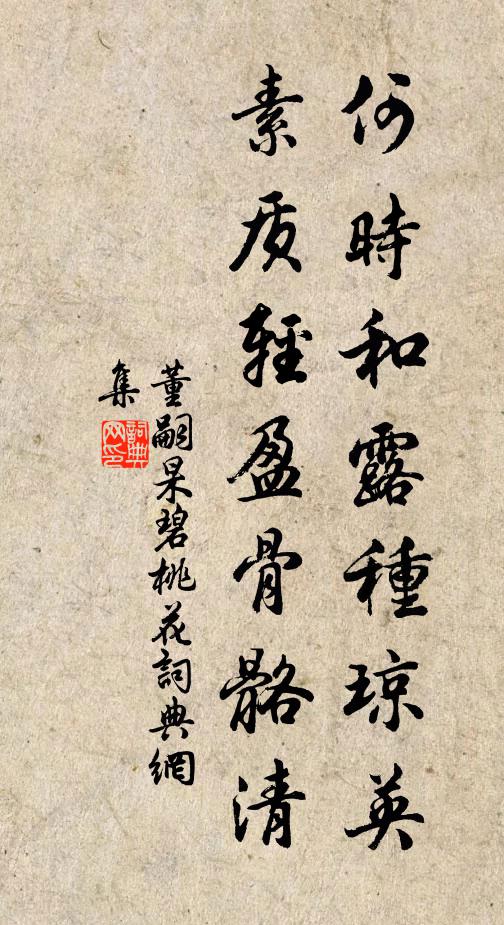 何時和露種琼英
素质輕盈骨骼清
董嗣杲碧桃花詞典網
集
詞典
网印